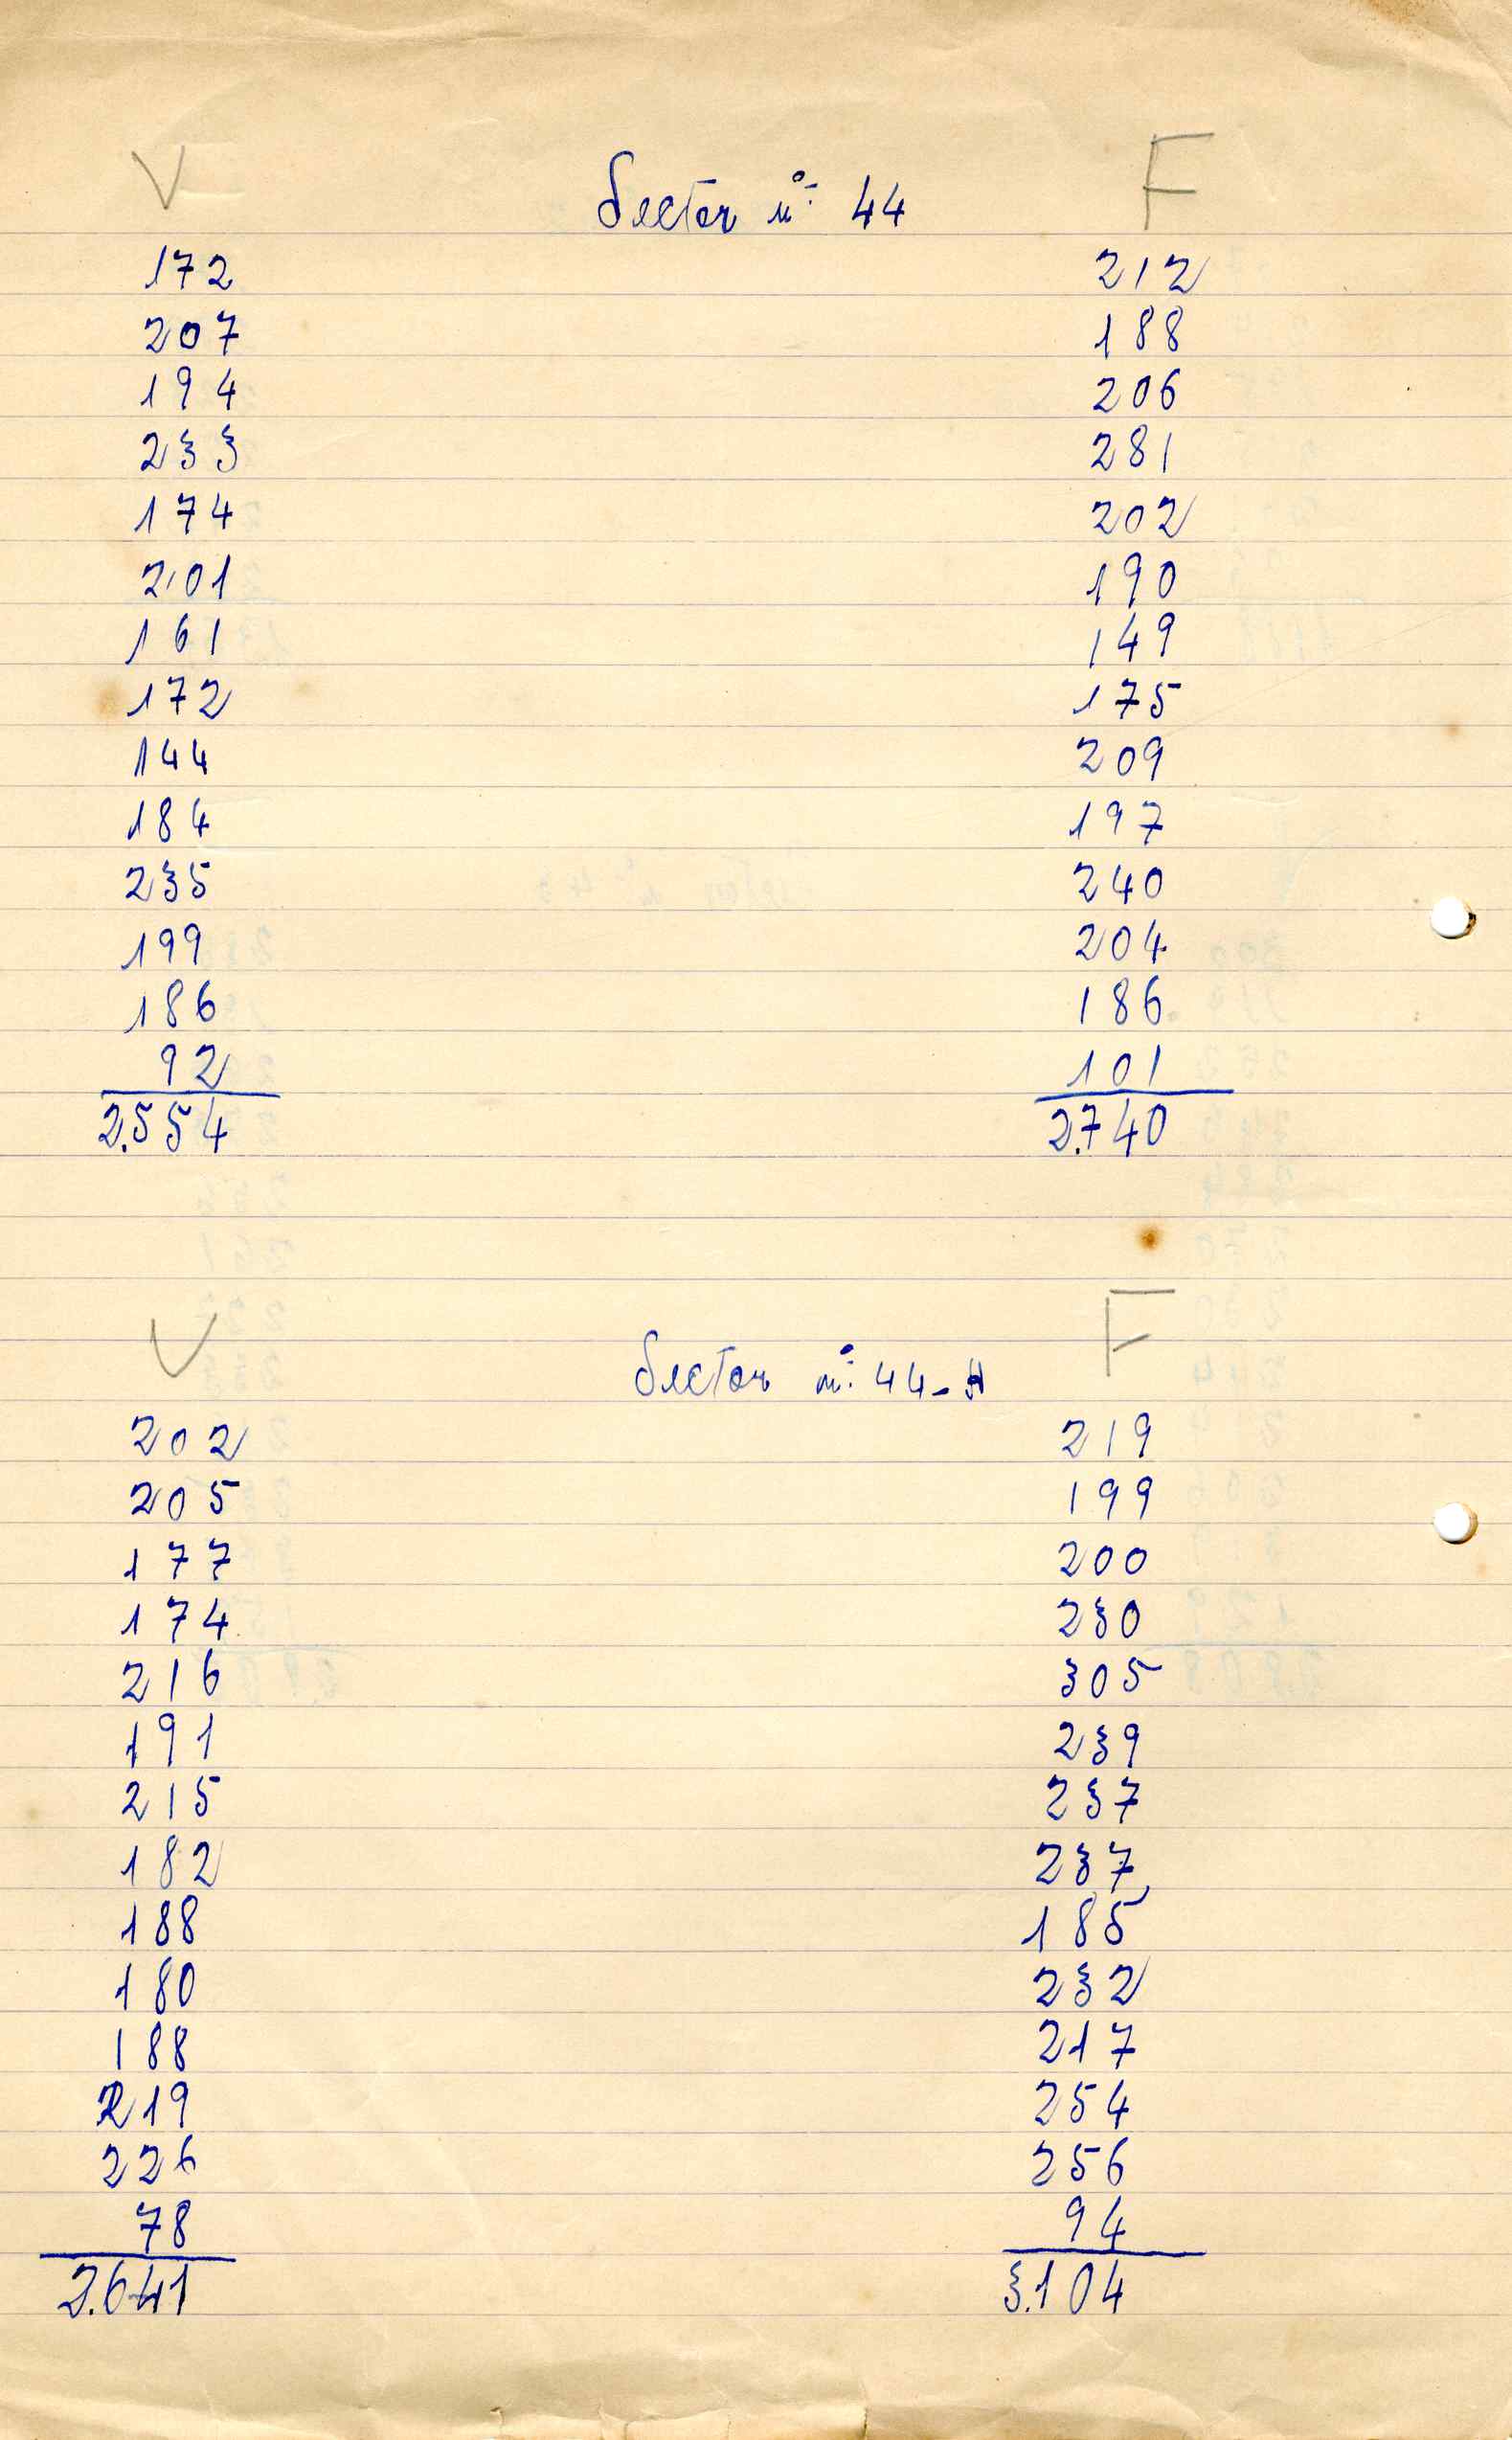 V Sector nº 44 F
172 212
207 188
194 206
233 281
174 202
201 190
161 149
172 175
144 209
184 197
235 240
199 204
186 186
92 101
2.554 2.740
V Sector nº 44-A F
202 219
205 199
177 200
174 230
216 305
191 239
215 237
182 237
188 185
180 232
188 217
219 254
226 256
78 94
2.641 3.104